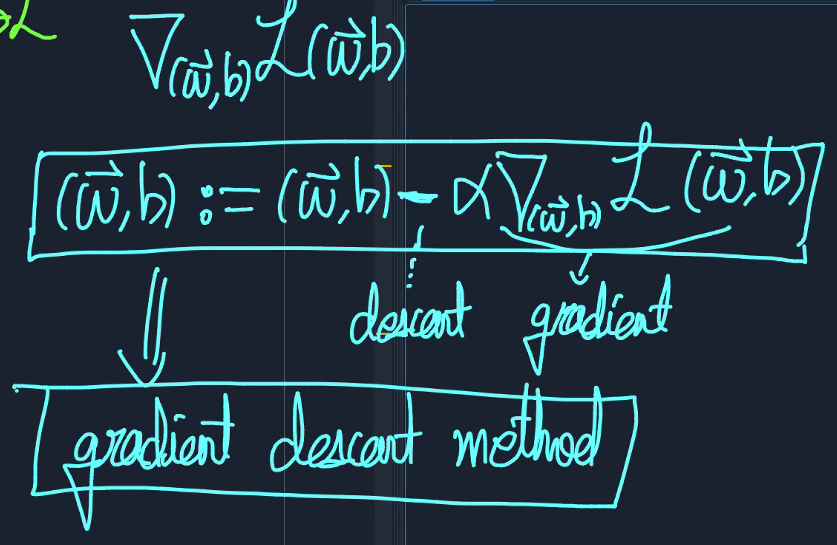 ∂L
∇_(w⃗,b) L(w⃗,b)
(w⃗,b) := (w⃗,b) - α∇_(w⃗,b) L(w⃗,b)
descent gradient
gradient descent method